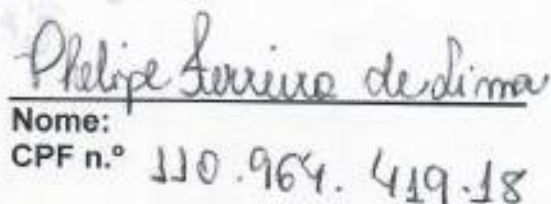 Phelipe Ferreira de Lima
Nome:
CPF n.º 110.964.419.18